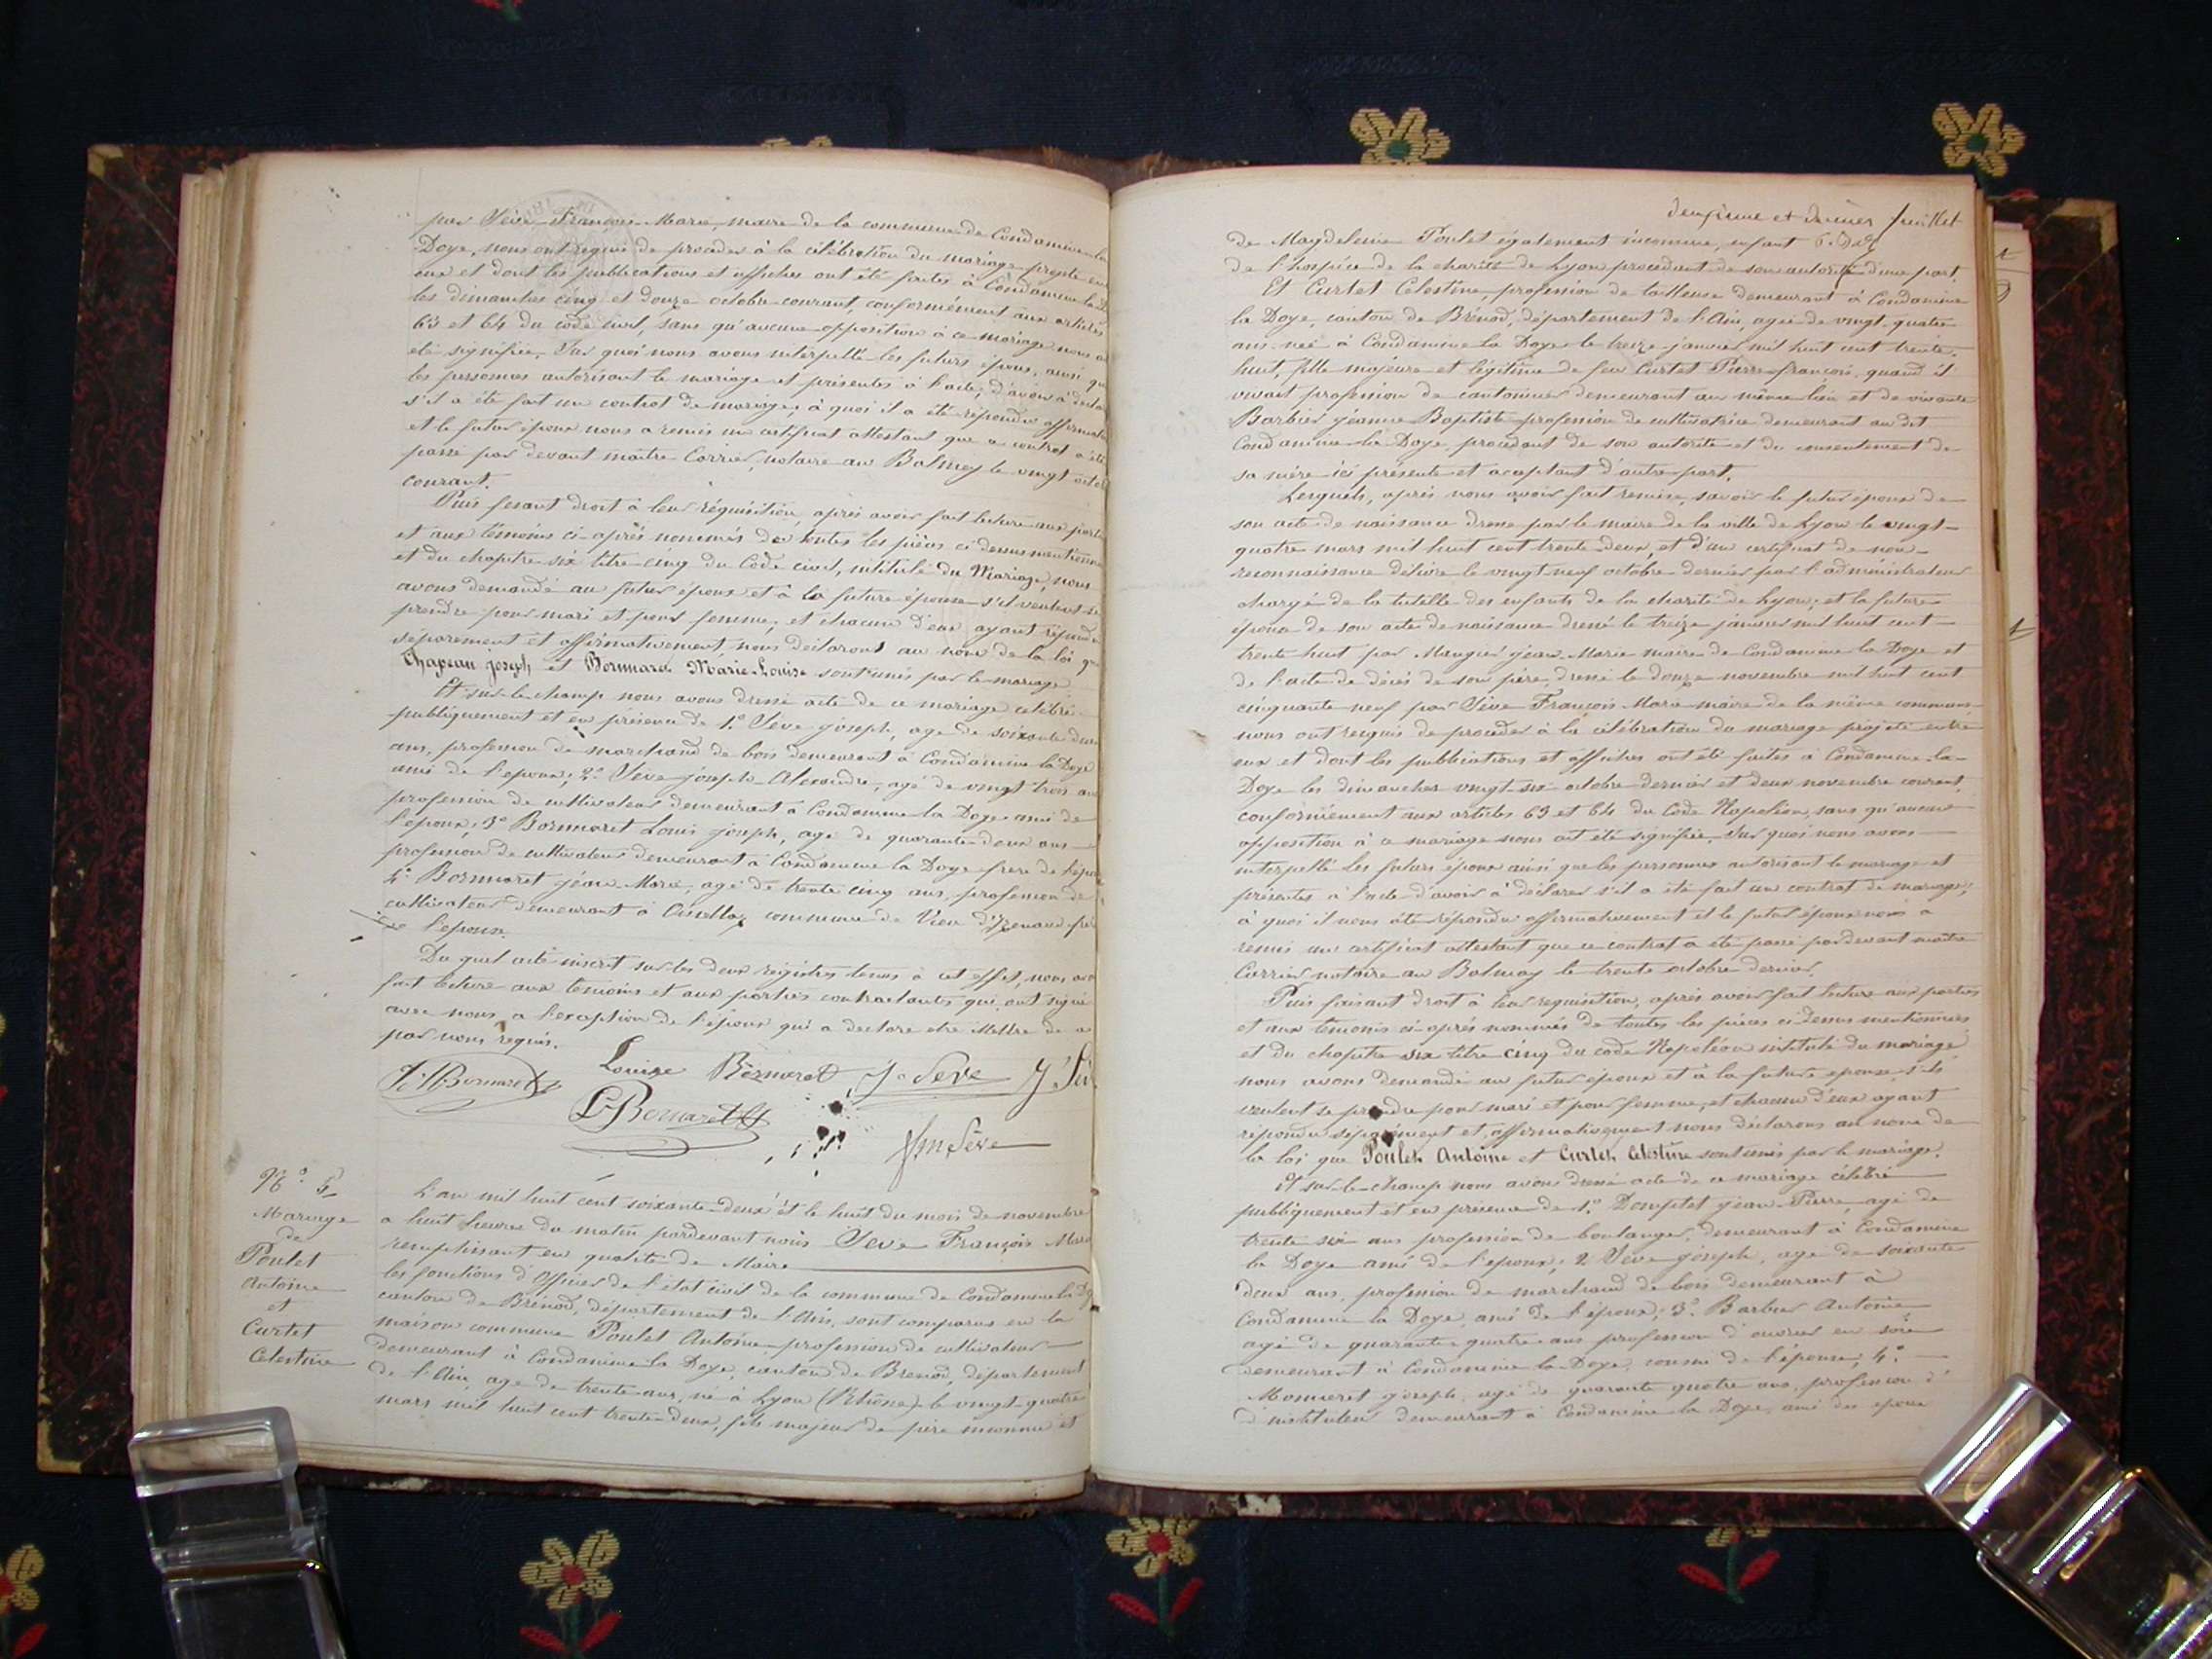 par Sève François Marie, maire de la commune de Condamine la
Doye, nous ont requis de procéder à la célébration du mariage projeté entre
eux et dont les publications et affiches ont été faites à Condamine la
les dimanches cinq et douze octobre courant, conformément aux articles
63 et 64 du code civil, sans qu'aucune opposition à ce mariage nous a
été signifiée, Sur quoi nous avons interpellé les futurs époux, ainsi que
les personnes autorisant le mariage et présentes à l'acte, d'avoir à
s'il a été fait un contrat de mariage, à quoi il a été répondu
et le futur époux nous a remis un certificat attestant que ce contrat a été
passé par devant maître Carrier, notaire au Balmay le vingt
courant.
Puis fesant droit à leur réquisition, après avoir fait lecture aux
et aux témoins ci-après nommés de toutes les pièces ci dessus
et du chapitre six titre cinq du Code civil, intitulé du Mariage, nous
avons demandé au futur époux et à la future épouse s'il veulent se
prendre pour mari et pour femme, et chacun d'eux ayant répondu
séparement et affirmativement, nous déclarons au nom de la loi que
Chapeau joseph et Bornaret Marie-Louise sont unis par le mariage
Et sur-le-champ nous avons dressé acte de ce mariage célébré
publiquement et en présence de 1.º Sève joseph, age de soixante deux
ans, profession de marchand de bois demeurant à Condamine la Doye
ami de l'epoux; 2.º Sève joseph Alexandre, agé de vingt trois ans
profession de cultivateur demeurant à Condamine la Doye ami de
l'époux; 3º Bornaret Louis joseph, age de quarante deux ans
profession de cultivateur demeurant à Condamine la Doye frere de
4º Bornaret jéan Marie, agé de trente cinq ans, profession de
cultivateur demeurant à commune de Vieu d'Izenave
de l'epouse.
Du quel acte inscrit sur les deux régistres tenus à cet effet, nous
fait lecture aux témoins et aux parties contractantes qui ont signé
avec nous a l'exception de l'époux qui a declaré etre illettré de ce
par nous requis.
Louise Bornaret J. Seve
L Bornaret
fm Sève
Nº 5
Mariage
de
Poulet
Antoine
et
Curtet
Celestine
L'an mil huit cent soixante-deux et le huit du mois de novembre
a huit heures du matin pardevant nous Seve François Marie
remplissant en qualité de Maire
les fonctions d'Officier de l'état civil de la commune de Condamine la
canton de Brénod, département de l'Ain, sont comparus en la
maison commune Poulet Antoine profession de cultivateur
demeurant à Condamine la Doye, canton de Brenod, département
de l'Ain, age de trente ans, né à Lyon (Rhône) le vingt-quatre
mars mil huit cent trente-deux, fils majeur de père inconnu et
deuxième et dernier feuillet
de Magdeleine Poulet également inconnue, enfant
de l'hospice de la charité de Lyon procedant de son autorité d'une part.
Et Curtet Celestine, profession de tailleuse demeurant à Condamine
la Doye, canton de Brénod, département de l'Ain, agée de vingt-quatre
ans née à Condamine la Doye le treize janvier mil huit cent trente-
huit, fille majeure et légitime de feu Curtet Pierre-françois, quand il
vivait profession de cantonnier demeurant au même lieu et de vivante
Barbier jéanne Baptiste profession de cultivatrice demeurant au dit
Condamine la Doye, procedant de son autorité et du consentement de
sa mère ici présente et acceptant d'autre part.
Lesquels, après nous avoir fait remise, savoir le futur époux de
son acte de naissance dressé par le maire de la ville de Lyon le vingt-
quatre mars mil huit cent trente-deux, et d'un certificat de non-
reconnaissance délivré le vingt neuf octobre dernier par l'administrateur
chargé de la tutelle des enfants de la charité de Lyon; et la future
épouse de son acte de naissance dressé le treize janvier mil huit cent
trente huit par jéan Marie maire de Condamine la Doye et
de l'acte de décès de son père, dressé le douze novembre mil huit cent
cinquante neuf par Sève François Marie maire de la même commune
nous ont requis de procéder à la célébration du mariage projeté entre
eux et dont les publications et affiches ont été faites à Condamine-la-
Doye les dimanches vingt-six octobre dernier et deux novembre courant,
conformément aux articles 63 et 64 du Code Napoléon, sans qu'aucune
opposition à ce mariage nous ait été signifiée, Sur quoi nous avons
interpellé les futurs époux ainsi que les personnes autorisant le mariage et
présentes à l'acte d'avoir à déclarer s'il a été fait un contrat de mariage,
à quoi il nous été répondu affirmativement et le futur époux nous a
remis un certificat attestant que ce contrat a été passé pardevant maître
Carrier notaire au Balmay le trente octobre dernier.
Puis faisant droit à leur requisition, après avoir fait lecture aux parties
et aux témoins ci-après nommés de toutes les pièces ci-dessus mentionnées
et du chapitre six titre cinq du code Napoléon intitulé du mariage
nous avons demandé au futur époux et à la future epouse s'ils
veulent se prendre pour mari et pour femme, et chacun d'eux ayant
répondu séparément et affirmativement nous déclarons au nom de
la loi que Poulet Antoine et Curtet Celestine sont unis par le mariage.
Et sur-le-champ nous avons dressé acte de ce mariage célébré
publiquement et en présence de 1.º jéan Pierre, agé de
trente six ans profession de boulanger, demeurant à Condamine
la Doye ami de l'epoux; 2 Sève joseph, age de soixante
deux ans, profession de marchand de bois demeurant à
Condamine la Doye, ami de l'époux; 3.º Barbier Antoine
agé de quarante quatre ans profession d'ouvrier en soie
demeurant à Condamine la Doye, cousin de l'épouse; 4.º
joseph, agé de quarante quatre ans, profession d'
d'instituteur demeurant à Condamine la Doye, ami des epoux